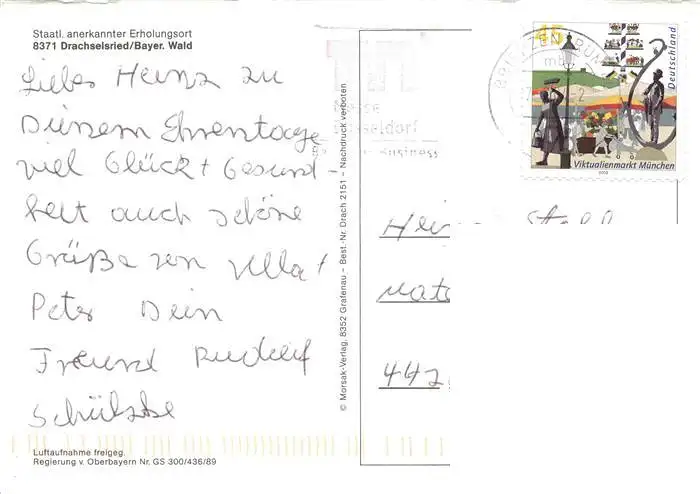 Staatl. anerkannter Erholungsort
8371 Drachselsried/Bayer. Wald
Liebes Heinz zu
Deinem Ehrentage
viel Glück + Gesund-
heit auch schöne
Grüße von Ulla +
Peter Dein
Freund Rudolf
Luftaufnahme freigeg.
Regierung v. Oberbayern Nr. GS 300/436/89
© Morsak-Verlag, 8352 Grafenau – Best.-Nr. Drach 2151 – Nachdruck verboten
BRIEFZENTRUM
45
Deutschland
Viktualienmarkt München
2003